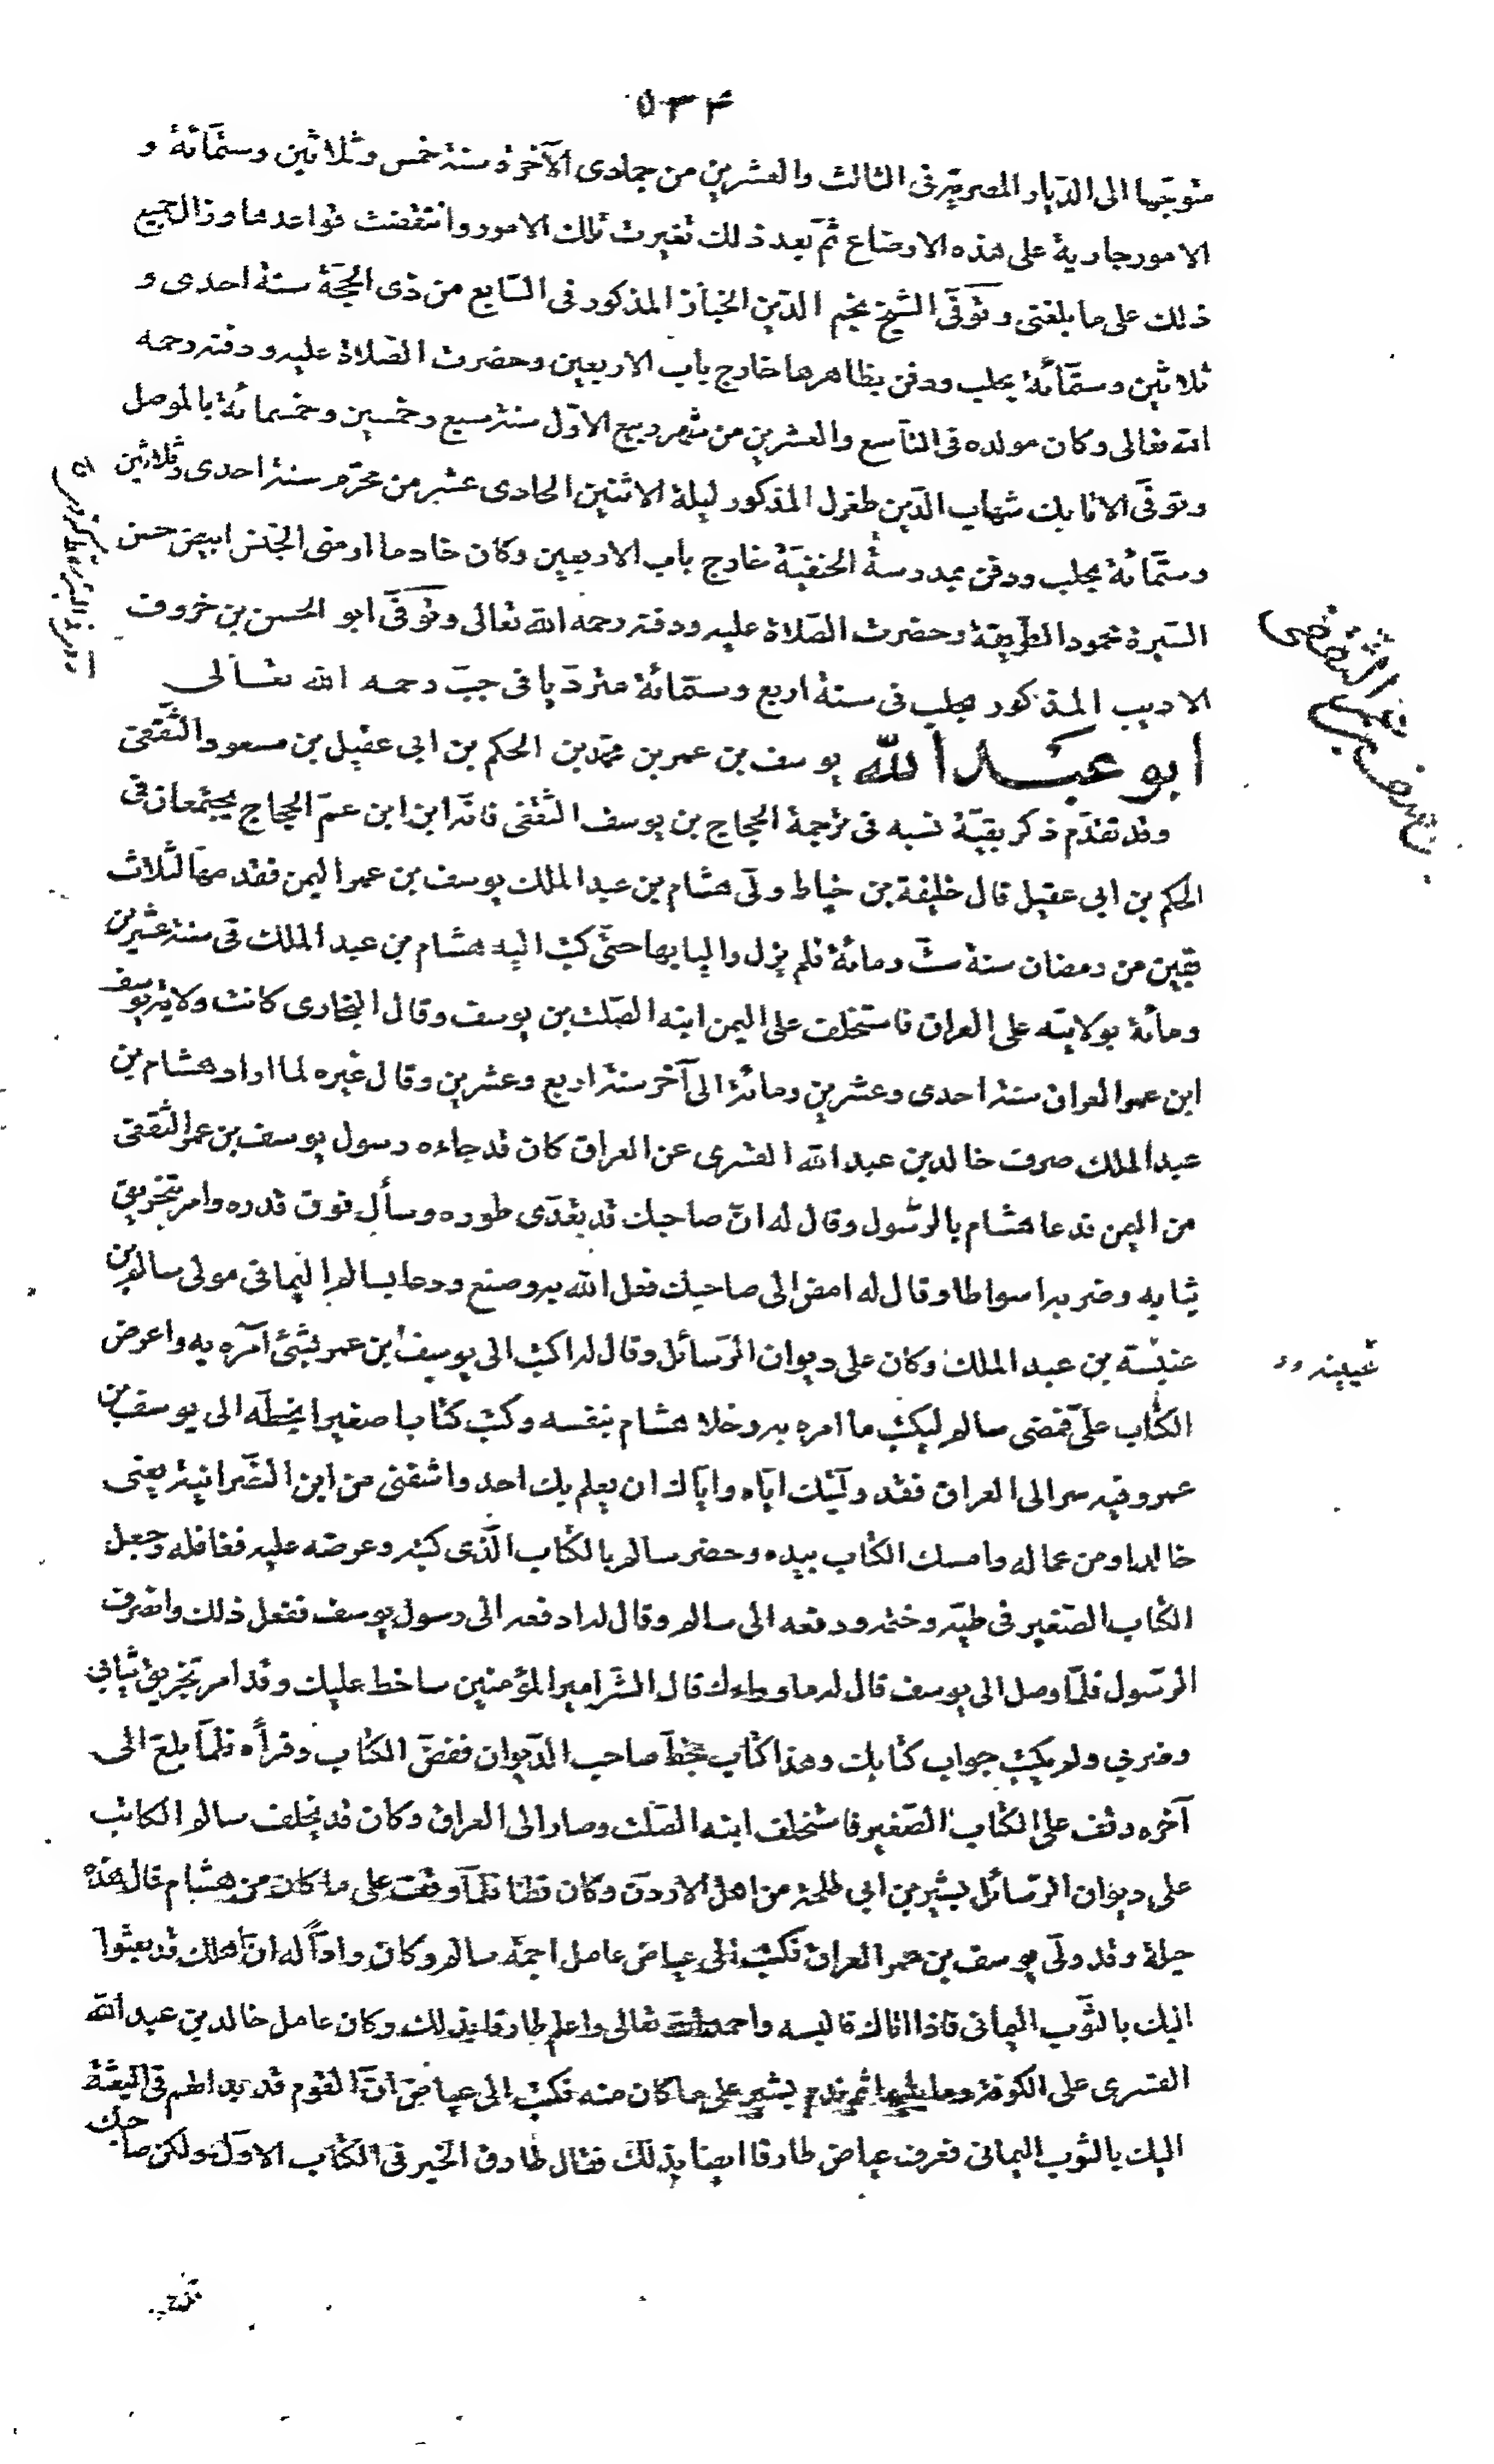 ۵۳۴
متوجّها الى الدّيار المصريّة فى الثالث والعشرين من جمادى الآخرة سنة خمس وثلاثين وستّمائة و
الامور جارية على هذه الاوضاع ثمّ بعد ذلك تغيرت تلك الامور وانتقضت قواعدها وزال جميع
ذلك على ما بلغنى وتوفّى الشّيخ نجم الدّين الخبّاز المذكور فى السّابع من ذى الحجّة سنة احدى و
ثلاثين وستّمائة بحلب ودفن بظاهرها خارج باب الاربعين وحضرت الصّلاة عليه ودفنه رحمه
الله تعالى وكان مولده فى التاسع والعشرين من شهر ربيع الاوّل سنة سبع وخمسين وخمسمائة بالموصل
وتوفّى الاتابك شهاب الدّين طغرل المذكور ليلة الاثنين الحادى عشر من محرّم سنة احدى وثلاثين
وستّمائة بحلب ودفن بمدرسة الحنفيّة خارج باب الاربعين وكان خادما ارمنى الجنس ابيض حسن
السّيرة محمود الطّريقة وحضرت الصّلاة عليه ودفنه رحمه الله تعالى وتوفّى ابو الحسن بن خروف
الاديب المذكور بحلب فى سنة اربع وستّمائة متردّيا فى جبّ رحمه الله تعالى
ابو عبد الله يوسف بن عمر بن محمّد بن الحكم بن ابى عقيل بن مسعود الثّقفى
وقد تقدّم ذكر بقيّة نسبه فى ترجمة الحجاج بن يوسف الثّقفى فانّه ابن ابن عمّ الحجاج يجتمعان فى
الحكم بن ابى عقيل قال خليفة بن خياط ولّى هشام بن عبد الملك يوسف بن عمر اليمن فقدمها لثلاث
بقين من رمضان سنة ستّ ومائة فلم يزل واليا بها حتّى كتب اليه هشام بن عبد الملك فى سنة عشرين
ومائة بولايته على العراق فاستخلف على اليمن ابنه الصّلت بن يوسف وقال البخارى كانت ولاية يوسف
ابن عمر العراق سنة احدى وعشرين ومائة الى آخر سنة اربع وعشرين وقال غيره لما اراد هشام بن
عبد الملك صرف خالد بن عبد الله القسرى عن العراق كان قد جاءه رسول يوسف بن عمر الثّقفى
من اليمن فدعا هشام بالرّسول وقال له انّ صاحبك قد تعدّى طوره وسأل فوق قدره وامر بتخريق
ثيابه وضربه اسواطا وقال له امض الى صاحبك فعل الله به وصنع ودعا بسالم اليمانى مولى سالم بن
عنبسة بن عبد الملك وكان على ديوان الرّسائل وقال له اكتب الى يوسف بن عمر بشئ آمره به واعرض
الكتاب علىّ فمضى سالم ليكتب ما امره به وخلا هشام بنفسه وكتب كتابا صغيرا بخطّه الى يوسف بن
عمر وفيه سر الى العراق فقد ولّيتك ايّاه وايّاك ان يعلم بك احد واشفنى من ابن النّصرانيّة يعنى
خالدا ومن عماله وامسك الكتاب بيده وحضر سالم بالكتاب الّذى كتبه وعرضه عليه فغافله وجعل
الكتاب الصّغير فى طيّه وختمه ودفعه الى سالم وقال له ادفعه الى رسول يوسف ففعل ذلك وانصرف
الرّسول فلمّا وصل الى يوسف قال له ما وراءك قال الشّر امير المؤمنين ساخط عليك وقد امر بتخريق ثيابى
وضربى ولم يكتب جواب كتابك وهذا كتاب بخطّ صاحب الدّيوان ففضّ الكتاب وقرأه فلمّا بلغ الى
آخره وقف على الكتاب الصّغير فاستخلف ابنه الصّلت وصار الى العراق وكان قد يخلف سالم الكاتب
على ديوان الرّسائل بشير بن ابى طلحة من اهل الاردن وكان فطنا فلمّا وقف على ما كان من هشام قال هذه
حيلة وقد ولّى يوسف بن عمر العراق فكتب الى عياض عامل اجمة سالم وكان وادّا له انّ اهلك قد بعثوا
اليك بالثّوب اليمانى فاذا اتاك فالبسه واحمد الله تعالى واعلم طارقا بذلك وكان عامل خالد بن عبد الله
القسرى على الكوفة وما يليها ثم ندم بشير على ما كان منه فكتب الى عياض انّ القوم قد بدا لهم فى البعثة
اليك بالثّوب اليمانى فعرف عياض طارقا ايضا بذلك فقال طارق الخبر فى الكتاب الاوّل ولكن صاحبك
يوسف بن عمر الثقفى